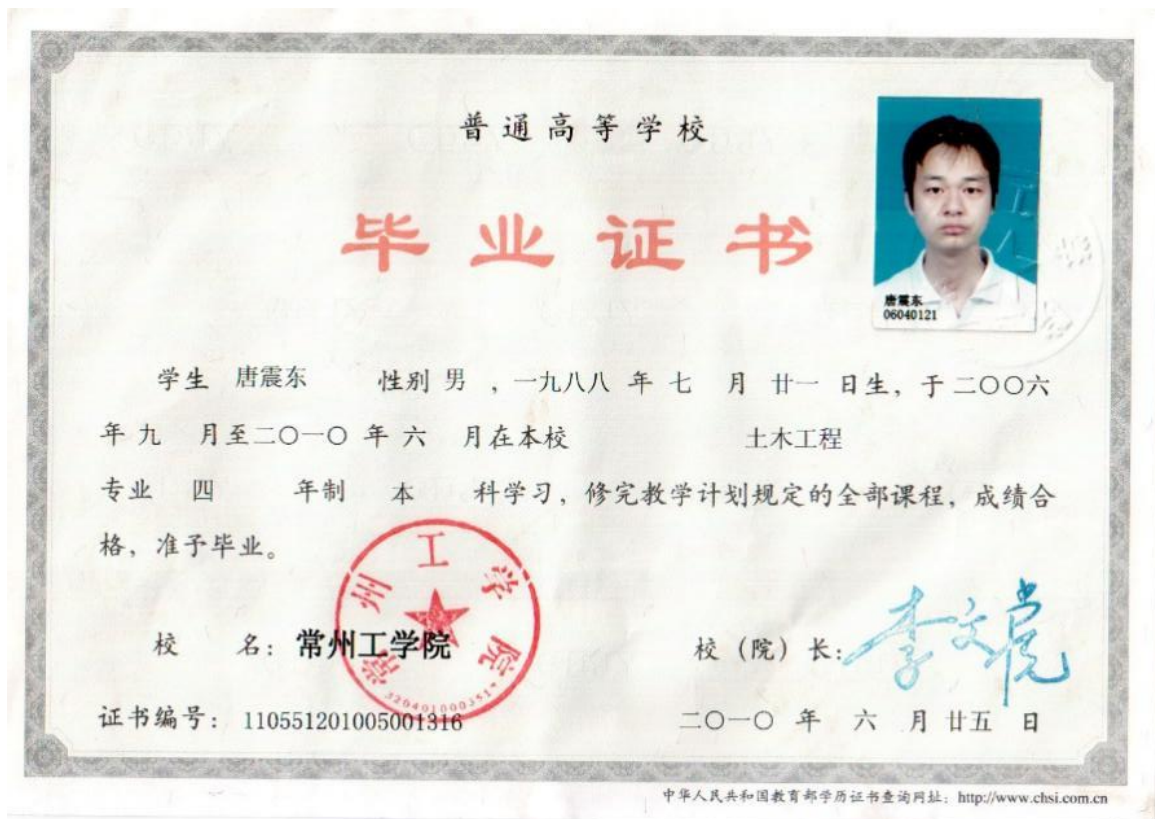 普通高等学校
毕业证书
唐震东
06040121
学生 唐震东 性别 男 ，一九八八 年 七 月 廿一 日生，于二〇〇六
年 九 月至二〇一〇 年 六 月在本校 土木工程
专业 四 年制 本 科学习，修完教学计划规定的全部课程，成绩合
格，准予毕业。
常州工学院
校 名：常州工学院
校（院）长：
证书编号：110551201005001316
二〇一〇 年 六 月 廿五 日
中华人民共和国教育部学历证书查询网址：http://www.chsi.com.cn